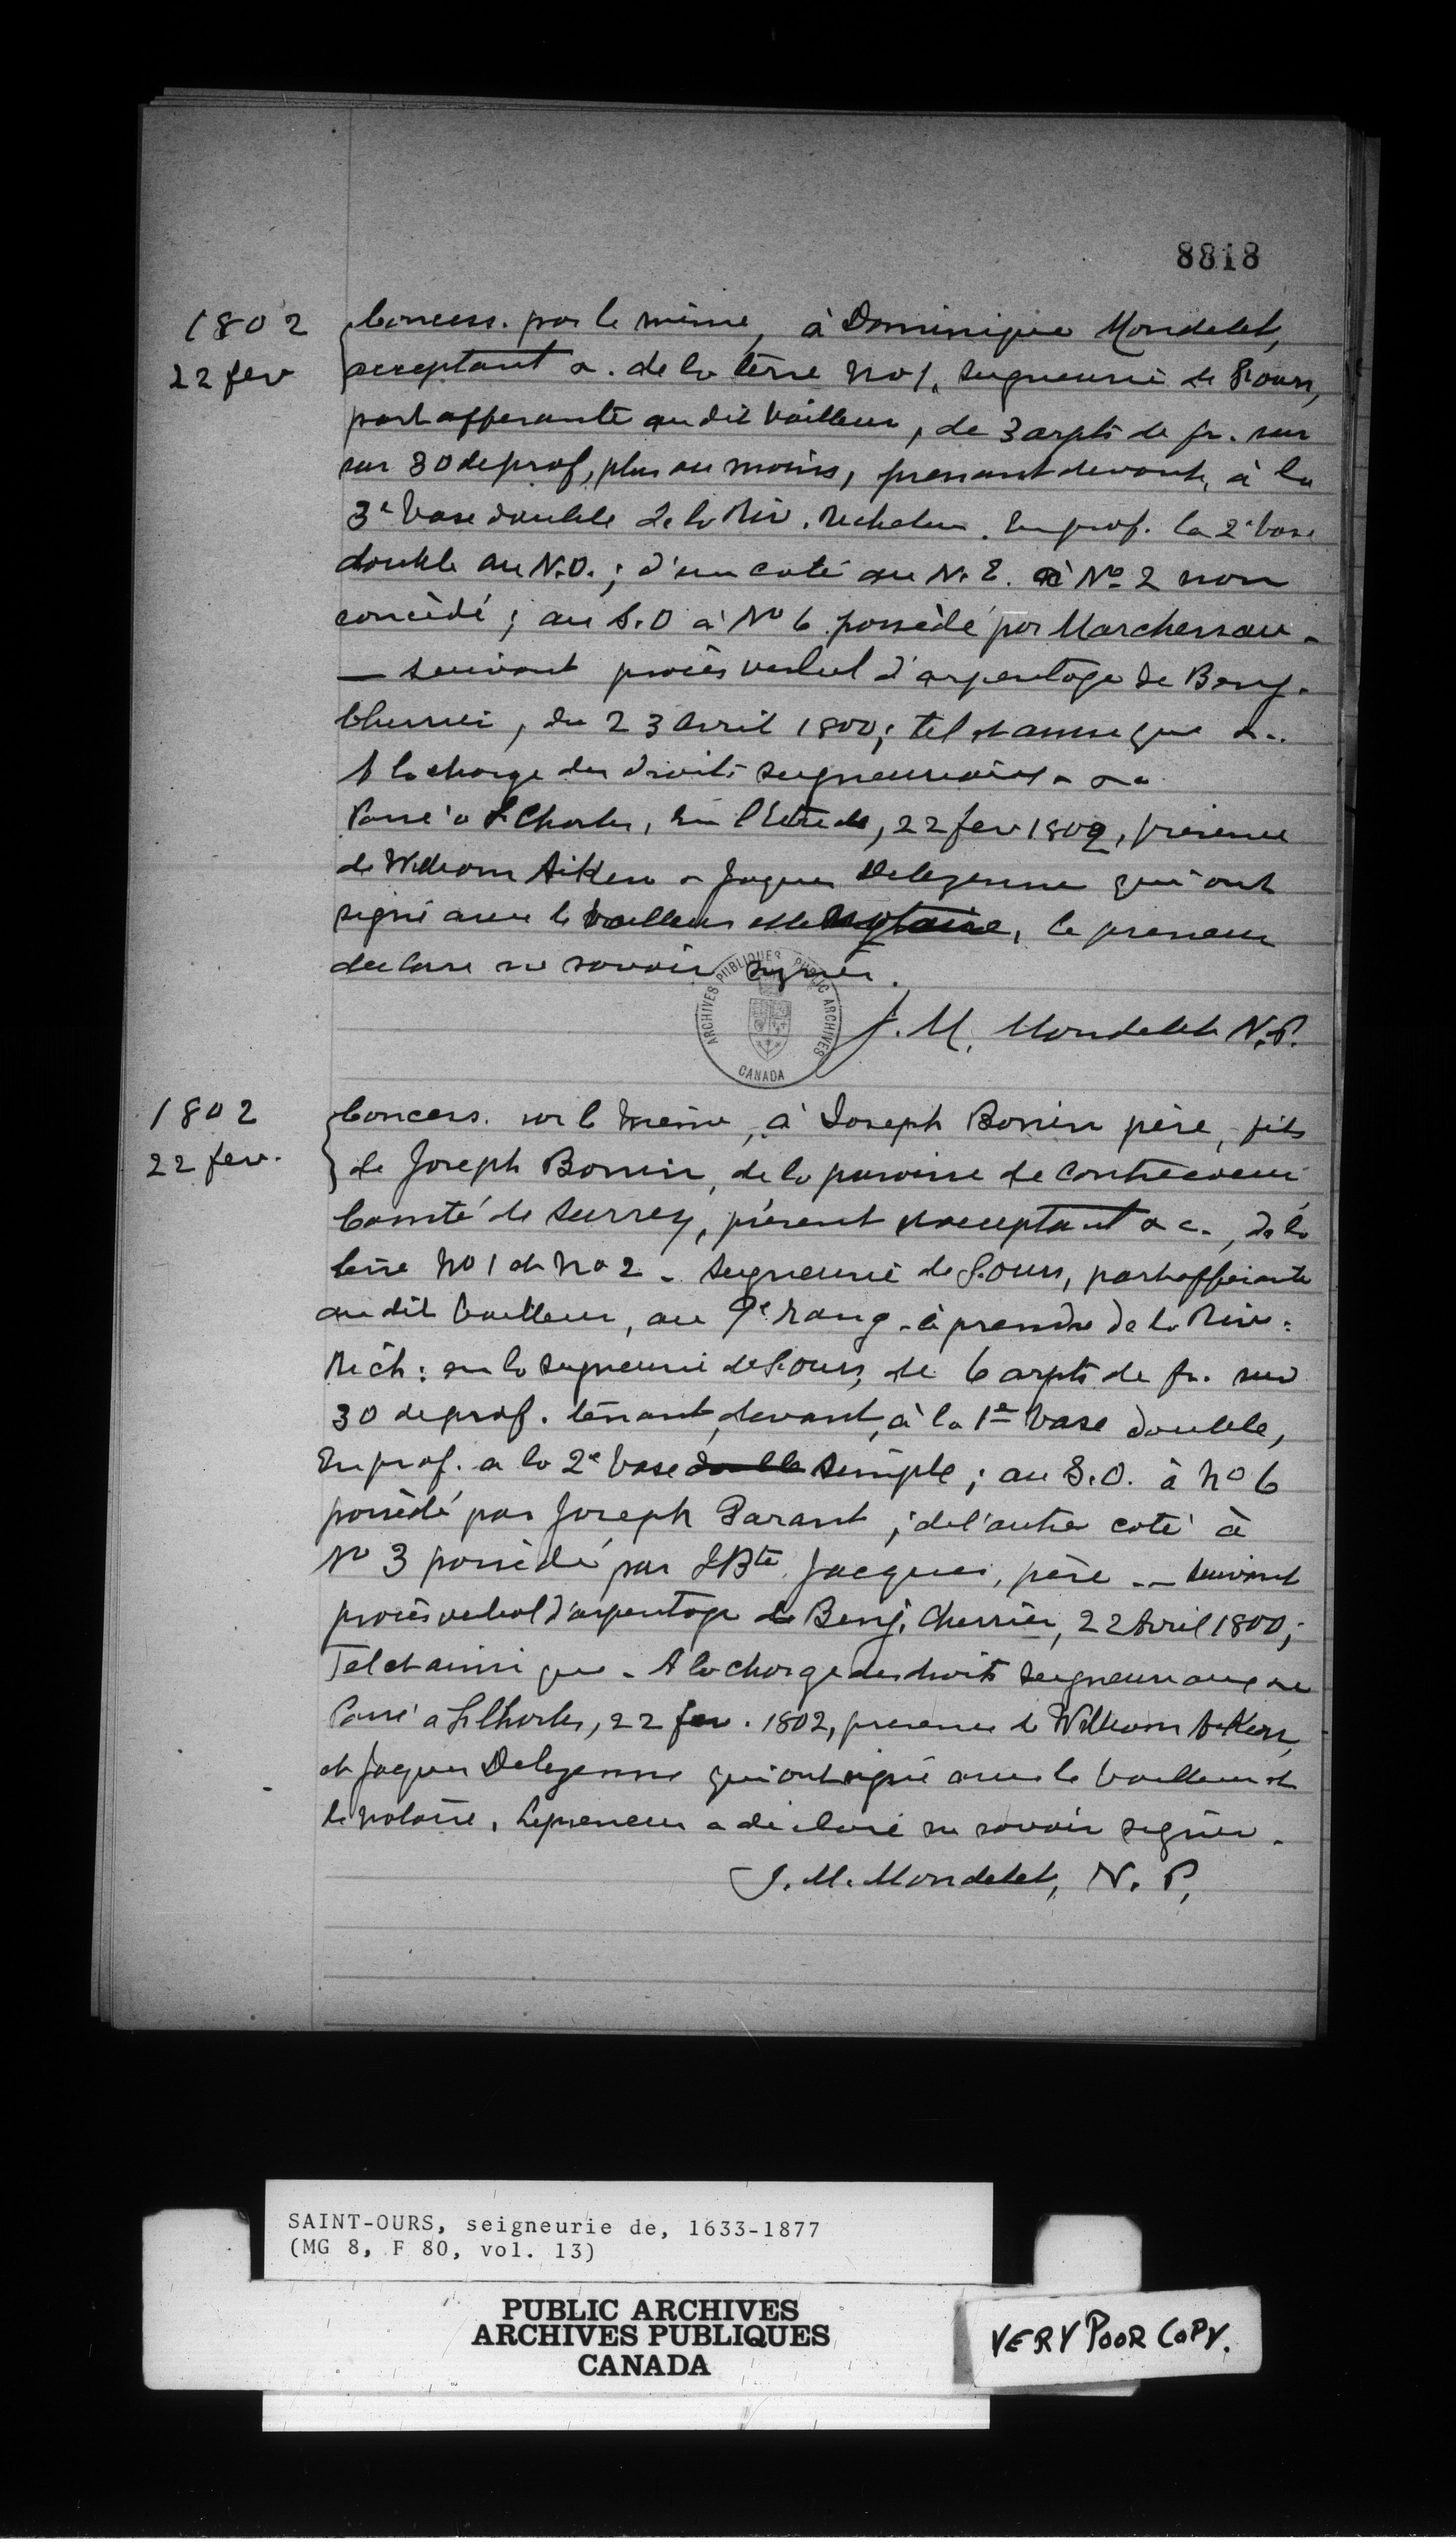 8818
1802
22 fev
Concess. par le même, à Dominique Mondelet,
acceptant &. de la terre No 1. Seigneurie de St Ours,
part afferante au dit bailleur, de 3 arpts de fr. sur
sur 30 de prof, plus ou moins, prenant devant, à la
3e base double de la Riv. Richelieu. En prof. la 2e base
double au N.O.; d'un coté au N.E. à No 2 non
concédé; au S.O à No 6 possédé par Marchessau -
— suivant procès verbal d'arpentage de Benj.
Cherrier, du 23 Avril 1800; tel et ainsi que &..
A la charge des droits seigneuriaux - &c
Passé à St Charles, en l'Etude, 22 fev 1802, présence
de William Aiken & Jaques Delezenne qui ont
signé avec le bailleur et le Notaire, le preneur
declare ne savoir signer.
ARCHIVES PUBLIQUES PUBLIC ARCHIVES
CANADA
J. M. Mondelet N.P.
1802
22 fev.
Concess. par le même, à Joseph Bonin père, fils
de Joseph Bonin, de la paroisse de Contrecoeur
Comté de Surrey, présent & acceptant & c., de la
terre No 1 et No 2 - Seigneurie de St. Ours, part afferante
au dit bailleur, au 9e rang - à prendre de la Riv:
Rich: en la seigneurie de St. Ours, de 6 arpts de fr. sur
30 de prof. tenant, devant, à la 1e base double,
En prof. a la 2e base double simple; au S.O. à No 6
possédé par Joseph Parant; de l'autre coté à
No 3 possédé par J Bte Jacques, père -- suivant
procès verbal d'arpentage de Benj. Cherrier, 22 Avril 1800;
Tel et ainsi que - A la charge des droits seigneuriaux &c
Passé a St Charles, 22 fev. 1802, presence de William Aiken,
et Jaques Delezenne qui ont signé avec le bailleur et
le notaire. Le preneur a déclaré ne savoir signer.
J. M. Mondelet, N. P.
SAINT-OURS, seigneurie de, 1633-1877
(MG 8, F 80, vol. 13)
PUBLIC ARCHIVES
ARCHIVES PUBLIQUES
CANADA
VERY POOR COPY.